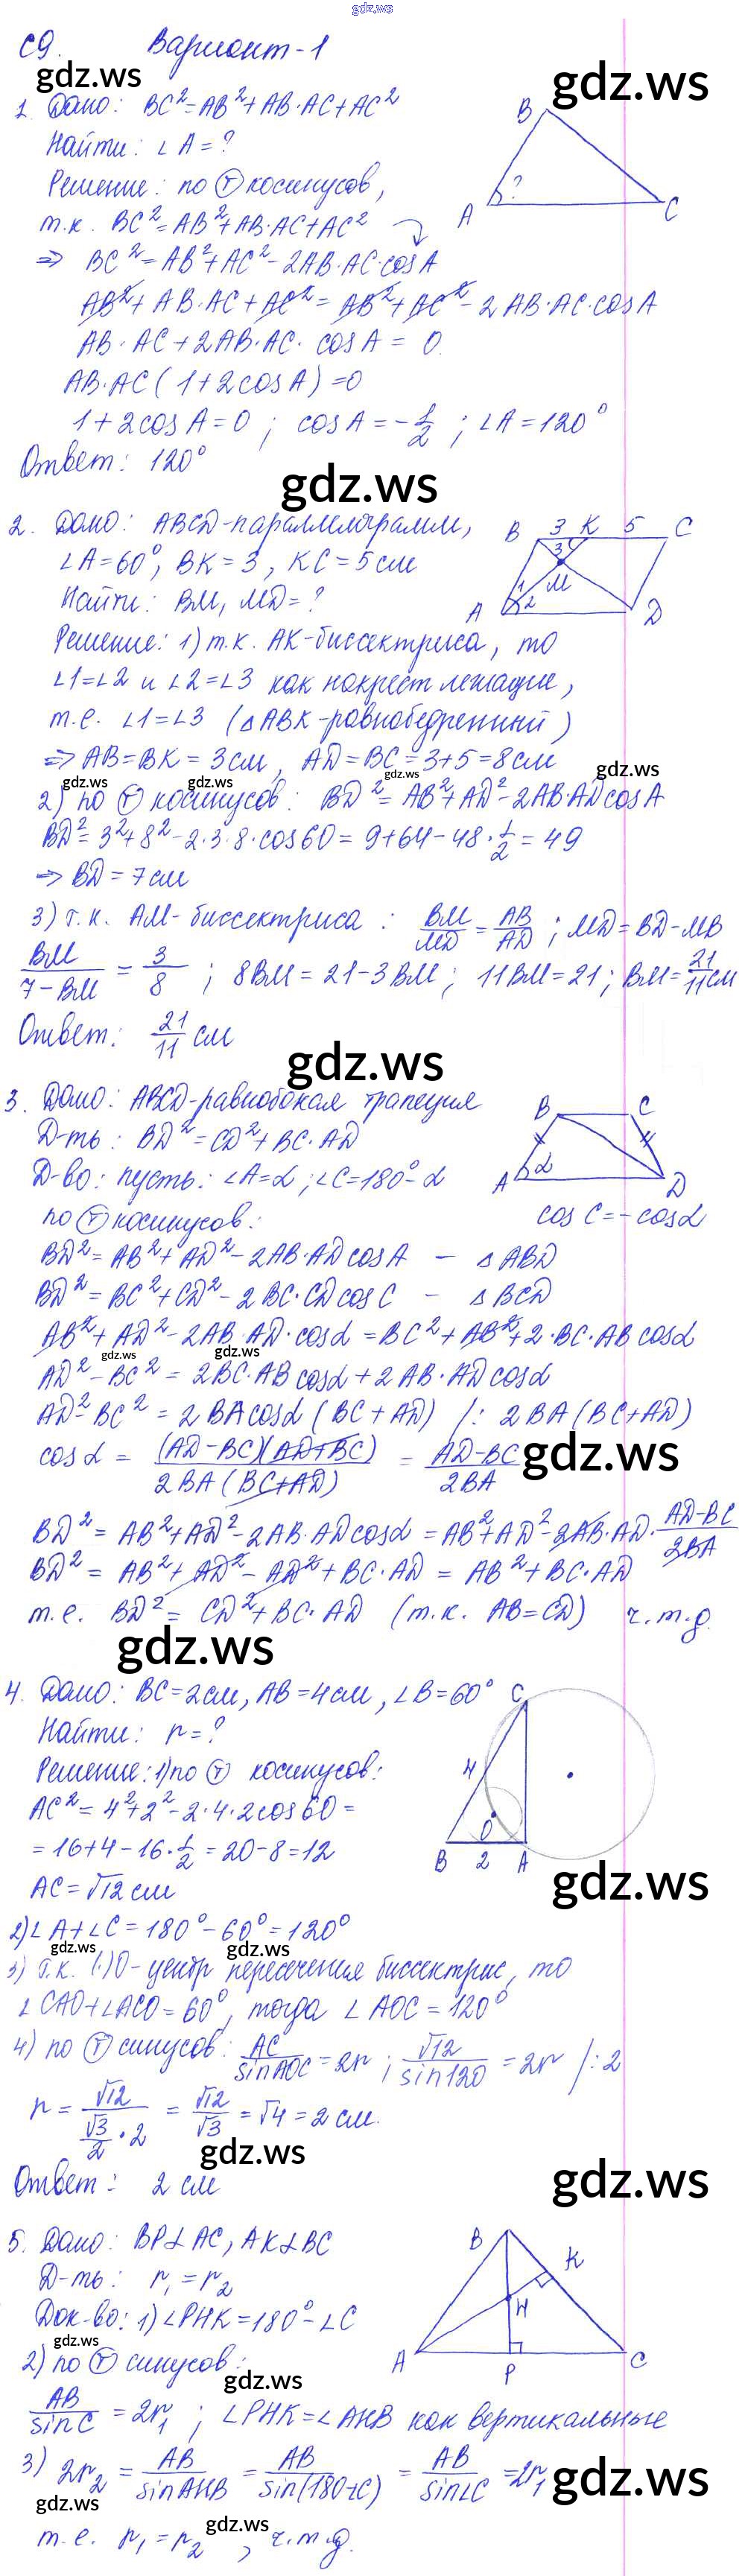 gdz.ws
С9. Вариант-1
gdz.ws gdz.ws
1. Дано: BC²=AB²+AB·AC+AC²
Найти: ∠A=?
Решение: по Ⓣ косинусов,
т.к. BC²=AB²+AB·AC+AC²
=> BC²=AB²+AC²-2AB·AC·cosA
AB²+AB·AC+AC²=AB²+AC²-2AB·AC·cosA
AB·AC+2AB·AC·cosA=0
AB·AC(1+2cosA)=0
1+2cosA=0; cosA=-1/2; ∠A=120°
Ответ: 120°
B
A ? C
gdz.ws
2. Дано: ABCD-параллелограмм,
∠A=60°, BK=3, KC=5см
Найти: BM, MD=?
Решение: 1) т.к. AK-биссектриса, то
∠1=∠2 и ∠2=∠3 как накрест лежащие,
т.е. ∠1=∠3 (△ABK-равнобедренный)
=> AB=BK=3см, AD=BC=3+5=8см
gdz.ws gdz.ws gdz.ws gdz.ws
2) по Ⓣ косинусов: BD²=AB²+AD²-2AB·ADcosA
BD²=3²+8²-2·3·8·cos60=9+64-48·1/2=49
=> BD=7см
3) т.к. AM-биссектриса: BM/MD=AB/AD; MD=BD-MB
BM/7-BM=3/8; 8BM=21-3BM; 11BM=21; BM=21/11см
Ответ: 21/11 см
B 3 K 5 C
3
1 M
A 2 D
gdz.ws
3. Дано: ABCD-равнобокая трапеция
Д-ть: BD²=CD²+BC·AD
Д-во: пусть: ∠A=α; ∠C=180°-α
по Ⓣ косинусов:
B C
A α D
cosC=-cosα
BD²=AB²+AD²-2AB·ADcosA - △ABD
BD²=BC²+CD²-2BC·CDcosC - △BCD
AB²+AD²-2AB·AD·cosα=BC²+AB²+2·BC·ABcosα
gdz.ws gdz.ws
AD²-BC²=2BC·ABcosα+2AB·ADcosα
AD²-BC²=2BAcosα(BC+AD) /: 2BA(BC+AD)
cosα=(AD-BC)(AD+BC)/2BA(BC+AD)=AD-BC/2BA
gdz.ws
BD²=AB²+AD²-2AB·ADcosα=AB²+AD²-2AB·AD·AD-BC/2BA
BD²=AB²+AD²-AD²+BC·AD=AB²+BC·AD
т.е. BD²=CD²+BC·AD (т.к. AB=CD) ч.т.д.
gdz.ws
4. Дано: BC=2см, AB=4см, ∠B=60°
Найти: r=?
Решение: 1) по Ⓣ косинусов:
AC²=4²+2²-2·4·2cos60=
=16+4-16·1/2=20-8=12
AC=√12см
C
4
O
B 2 A
gdz.ws
2) ∠A+∠C=180°-60°=120°
gdz.ws gdz.ws
3) т.к. (·)O-центр пересечения биссектрис, то
∠CAO+∠ACO=60°, тогда ∠AOC=120°
4) по Ⓣ синусов: AC/sinAOC=2r; √12/sin120=2r /:2
r=√12/√3/2·2=√12/√3=√4=2см.
gdz.ws
Ответ: 2см
gdz.ws
5. Дано: BP⊥AC, AK⊥BC
Д-ть: r₁=r₂
Док-во: 1) ∠PHK=180°-∠C
gdz.ws
2) по Ⓣ синусов:
gdz.ws
B
K
H
A P C
AB/sinC=2r₁; ∠PHK=∠AHB как вертикальные
3) 2r₂=AB/sinAHB=AB/sin(180-∠C)=AB/sin∠C=2r₁
gdz.ws gdz.ws gdz.ws
т.е. r₁=r₂, ч.т.д.